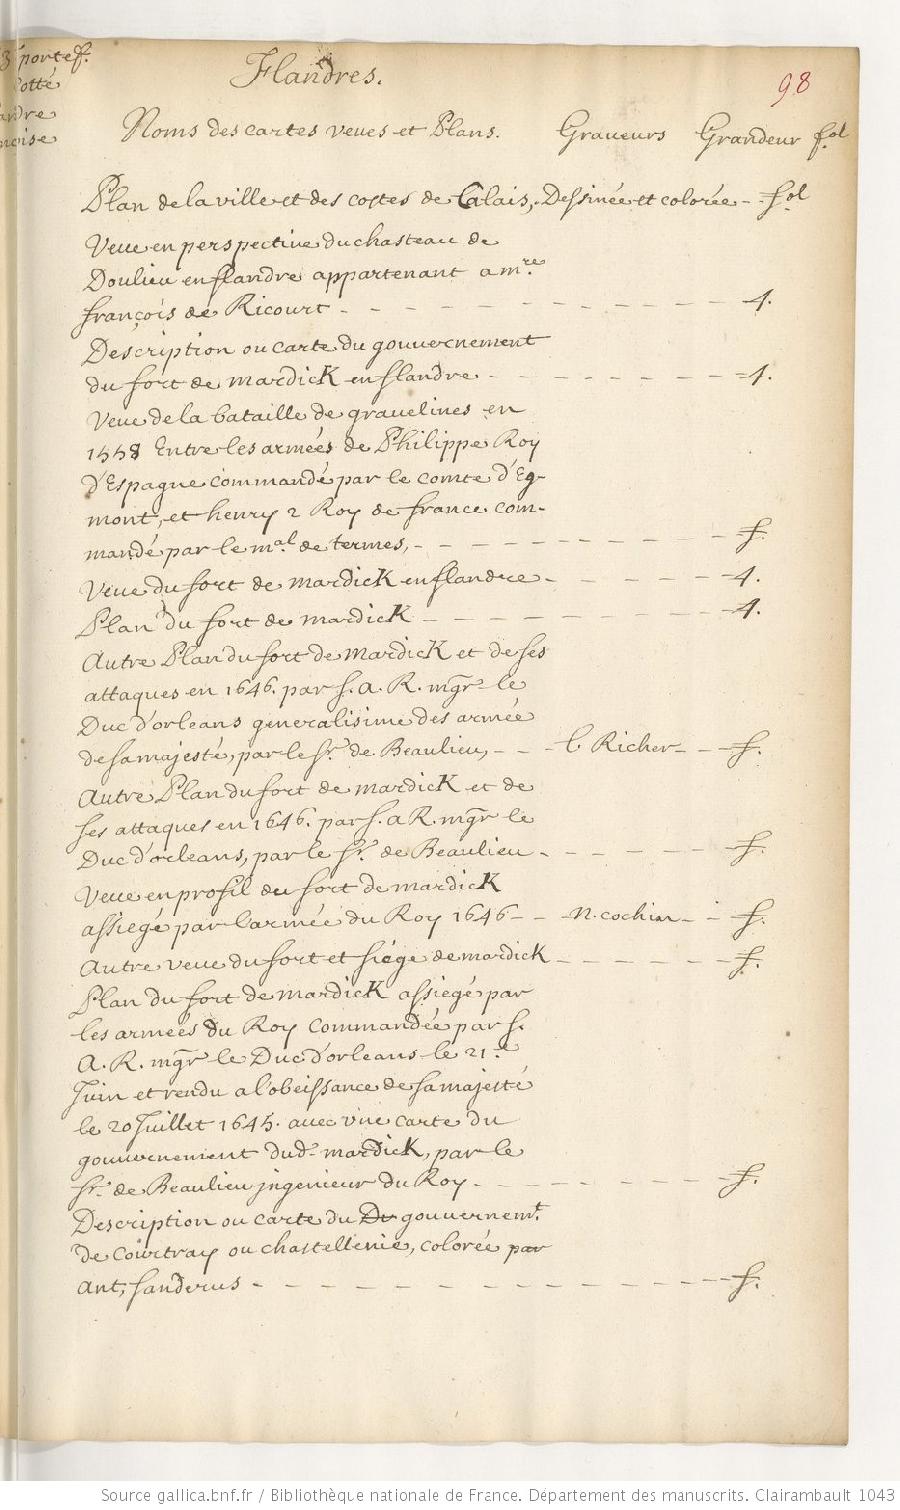 3 portef.
Cotté
andre
ncoise
Flandres.
98
Noms des cartes veues et Plans. Graveurs Grandeur fol
Plan de la ville et des costes de Calais, Dessinée et colorée - fol
Veue en perspective du chasteau de
Doulieu en flandre appartenant a mre.
françois de Ricourt - - - - - - - - - - 4.
Description ou carte du gouvernement
du fort de mardick en flandre - - - - - - - 4.
Veue de la bataille de gravelines en
1558 Entre les armées de Philippe Roy
d'Espagne commandé par le comte d'Eg-
mont, et henry 2 Roy de france com-
mandé par le mal. de termes, - - - - - - - - f.
Veue du fort de mardick en flandre - - - - - 4.
Plan du fort de mardick - - - - - - - - - 4.
Autre Plan du fort de mardick et de ses
attaques en 1646. par S. A. R. mgr le
Duc d'orleans generalisime des armée
de sa majesté, par le Sr. de Beaulieu, - - - l. Richer - - f.
Autre Plan du fort de mardick et de
ses attaques en 1646. par S. A R. mgr le
Duc d'orleans, par le Sr. de Beaulieu - - - - - - f.
Veue en profil du fort de mardick
assiegé par l'armée du Roy 1646 - - n. cochin - - f.
Autre veue du fort et siége de mardick - - - - - f.
Plan du fort de mardick assiegé par
les armées du Roy Commandée par S.
A. R. mgr le Duc d'orleans le 21.e
Juin et rendu a l'obeissance de sa majesté
le 20 Juillet 1645. avec vne carte du
gouvernement dud. mardick, par le
Sr. de Beaulieu jngenieur du Roy - - - - - - - f.
Description ou carte du Du gouvernemt.
de Courtray ou chastellenie, colorée par
Ant, Sanderus - - - - - - - - - - - - - f.
Source gallica.bnf.fr / Bibliothèque nationale de France. Département des manuscrits. Clairambault 1043